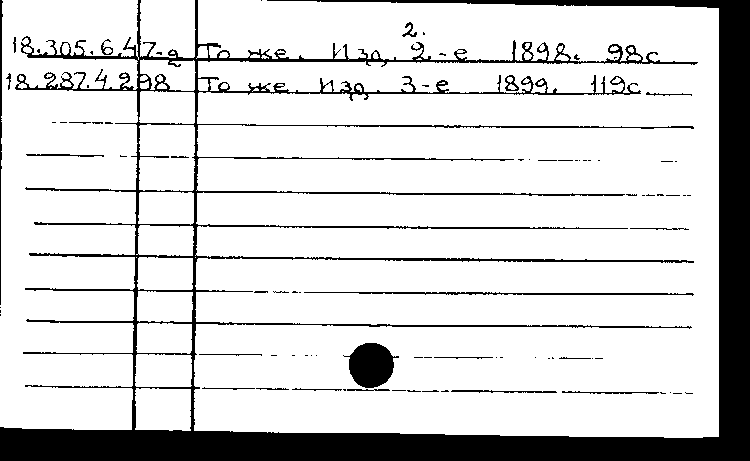 2.
18.305.6.47-а То же. Изд. 2-е 1898. 98с
18.287.4.298 То же. Изд. 3-е 1899. 119с.